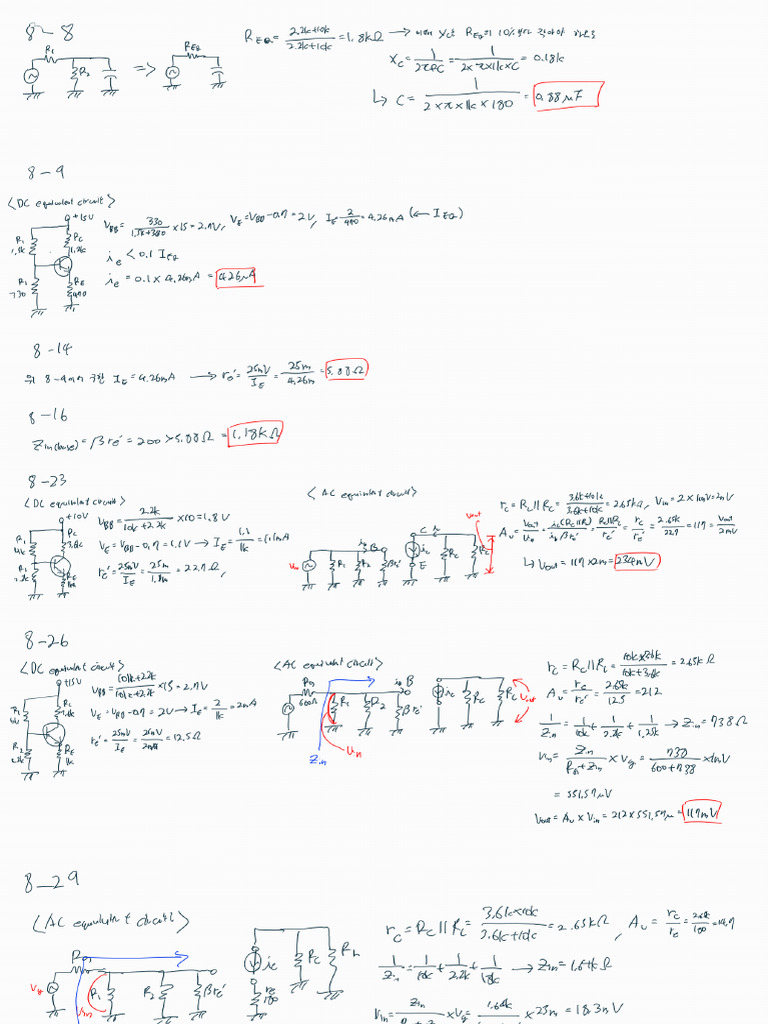 8-8
R1
R2
=>
REQ
REQ = 2.2k+10k / 2.2k+10k = 1.8kΩ →
XC = 1/2πfC = 1/2×π×1k×C = 0.18k
↳ C = 1/2×π×1k×180 = 0.88μF
8-9
<DC equivalent circuit>
+15V
R1
RC
RE
VBB = 330/1.5k+330 ×15 = 2.7V, VE = VBB-0.7 = 2V, IE = 2/470 = 4.26mA (← IEQ)
ie < 0.1 IEQ
ie = 0.1 × 4.26mA = 426μA
8-14
IE = 4.26mA → re' = 25mV/IE = 25m/4.26m = 5.88Ω
8-16
Zin(base) = βre' = 200 × 5.88Ω = 1.18kΩ
8-23
<DC equivalent circuit>
+10V
R1
RC
3.6k
RE
1k
VBB = 2.2k/10k+2.2k ×10 = 1.8V
VE = VBB-0.7 = 1.1V → IE = 1.1/1k = 1.1mA
re' = 25mV/IE = 25m/1.1m = 22.7Ω,
<AC equivalent circuit>
Vout
Vin
R1
R2
βre'
B
C
E
ic
RC
RL
rc = RC||RL = 3.6k×10k/3.6k+10k = 2.65kΩ, Vin = 2×1mV = 2mV
Av = Vout/Vin = ic(RC||RL)/ibβre' = RC||RL/re' = rc/re' = 2.65k/22.7 = 117 = Vout/2mV
↳ Vout = 117×2m = 234mV
8-26
<DC equivalent circuit>
+15V
R1
RC
R2
RE
1k
VBB = 10k+2.2k ×15 = 2.7V
VE = VBB-0.7 = 2V → IE = 2/1k = 2mA
re' = 25mV/IE = 25mV/2mA = 12.5Ω
<AC equivalent circuit>
600Ω
R1
R2
βre'
B
Zin
Vin
ic
RC
RL
Vout
rc = RC||RL = 10k×3.6k/10k+3.6k = 2.65kΩ
Av = rc/re' = 2.65k/12.5 = 212
1/Zin = 1/10k + 1/2.2k + 1/1.25k → Zin = 738Ω
Vin = Zin/+Zin × Vg = 738/600+738 ×1mV
= 551.57μV
Vout = Av × Vin = 212×551.57μ = 117mV
8-29
<AC equivalent circuit>
Vg
R1
R2
βre'
Vin
ic
re
180
RC
RL
rc = RC||RL = 3.6k×10k/3.6k+10k = 2.65kΩ, Av = rc/re = 2.65k/180 = 14.7
1/Zin = 1/10k + 1/2.2k + 1/18k → Zin = 1.64kΩ
Vin = Zin ×Vg = 1.64k ×25m = 18.3mV